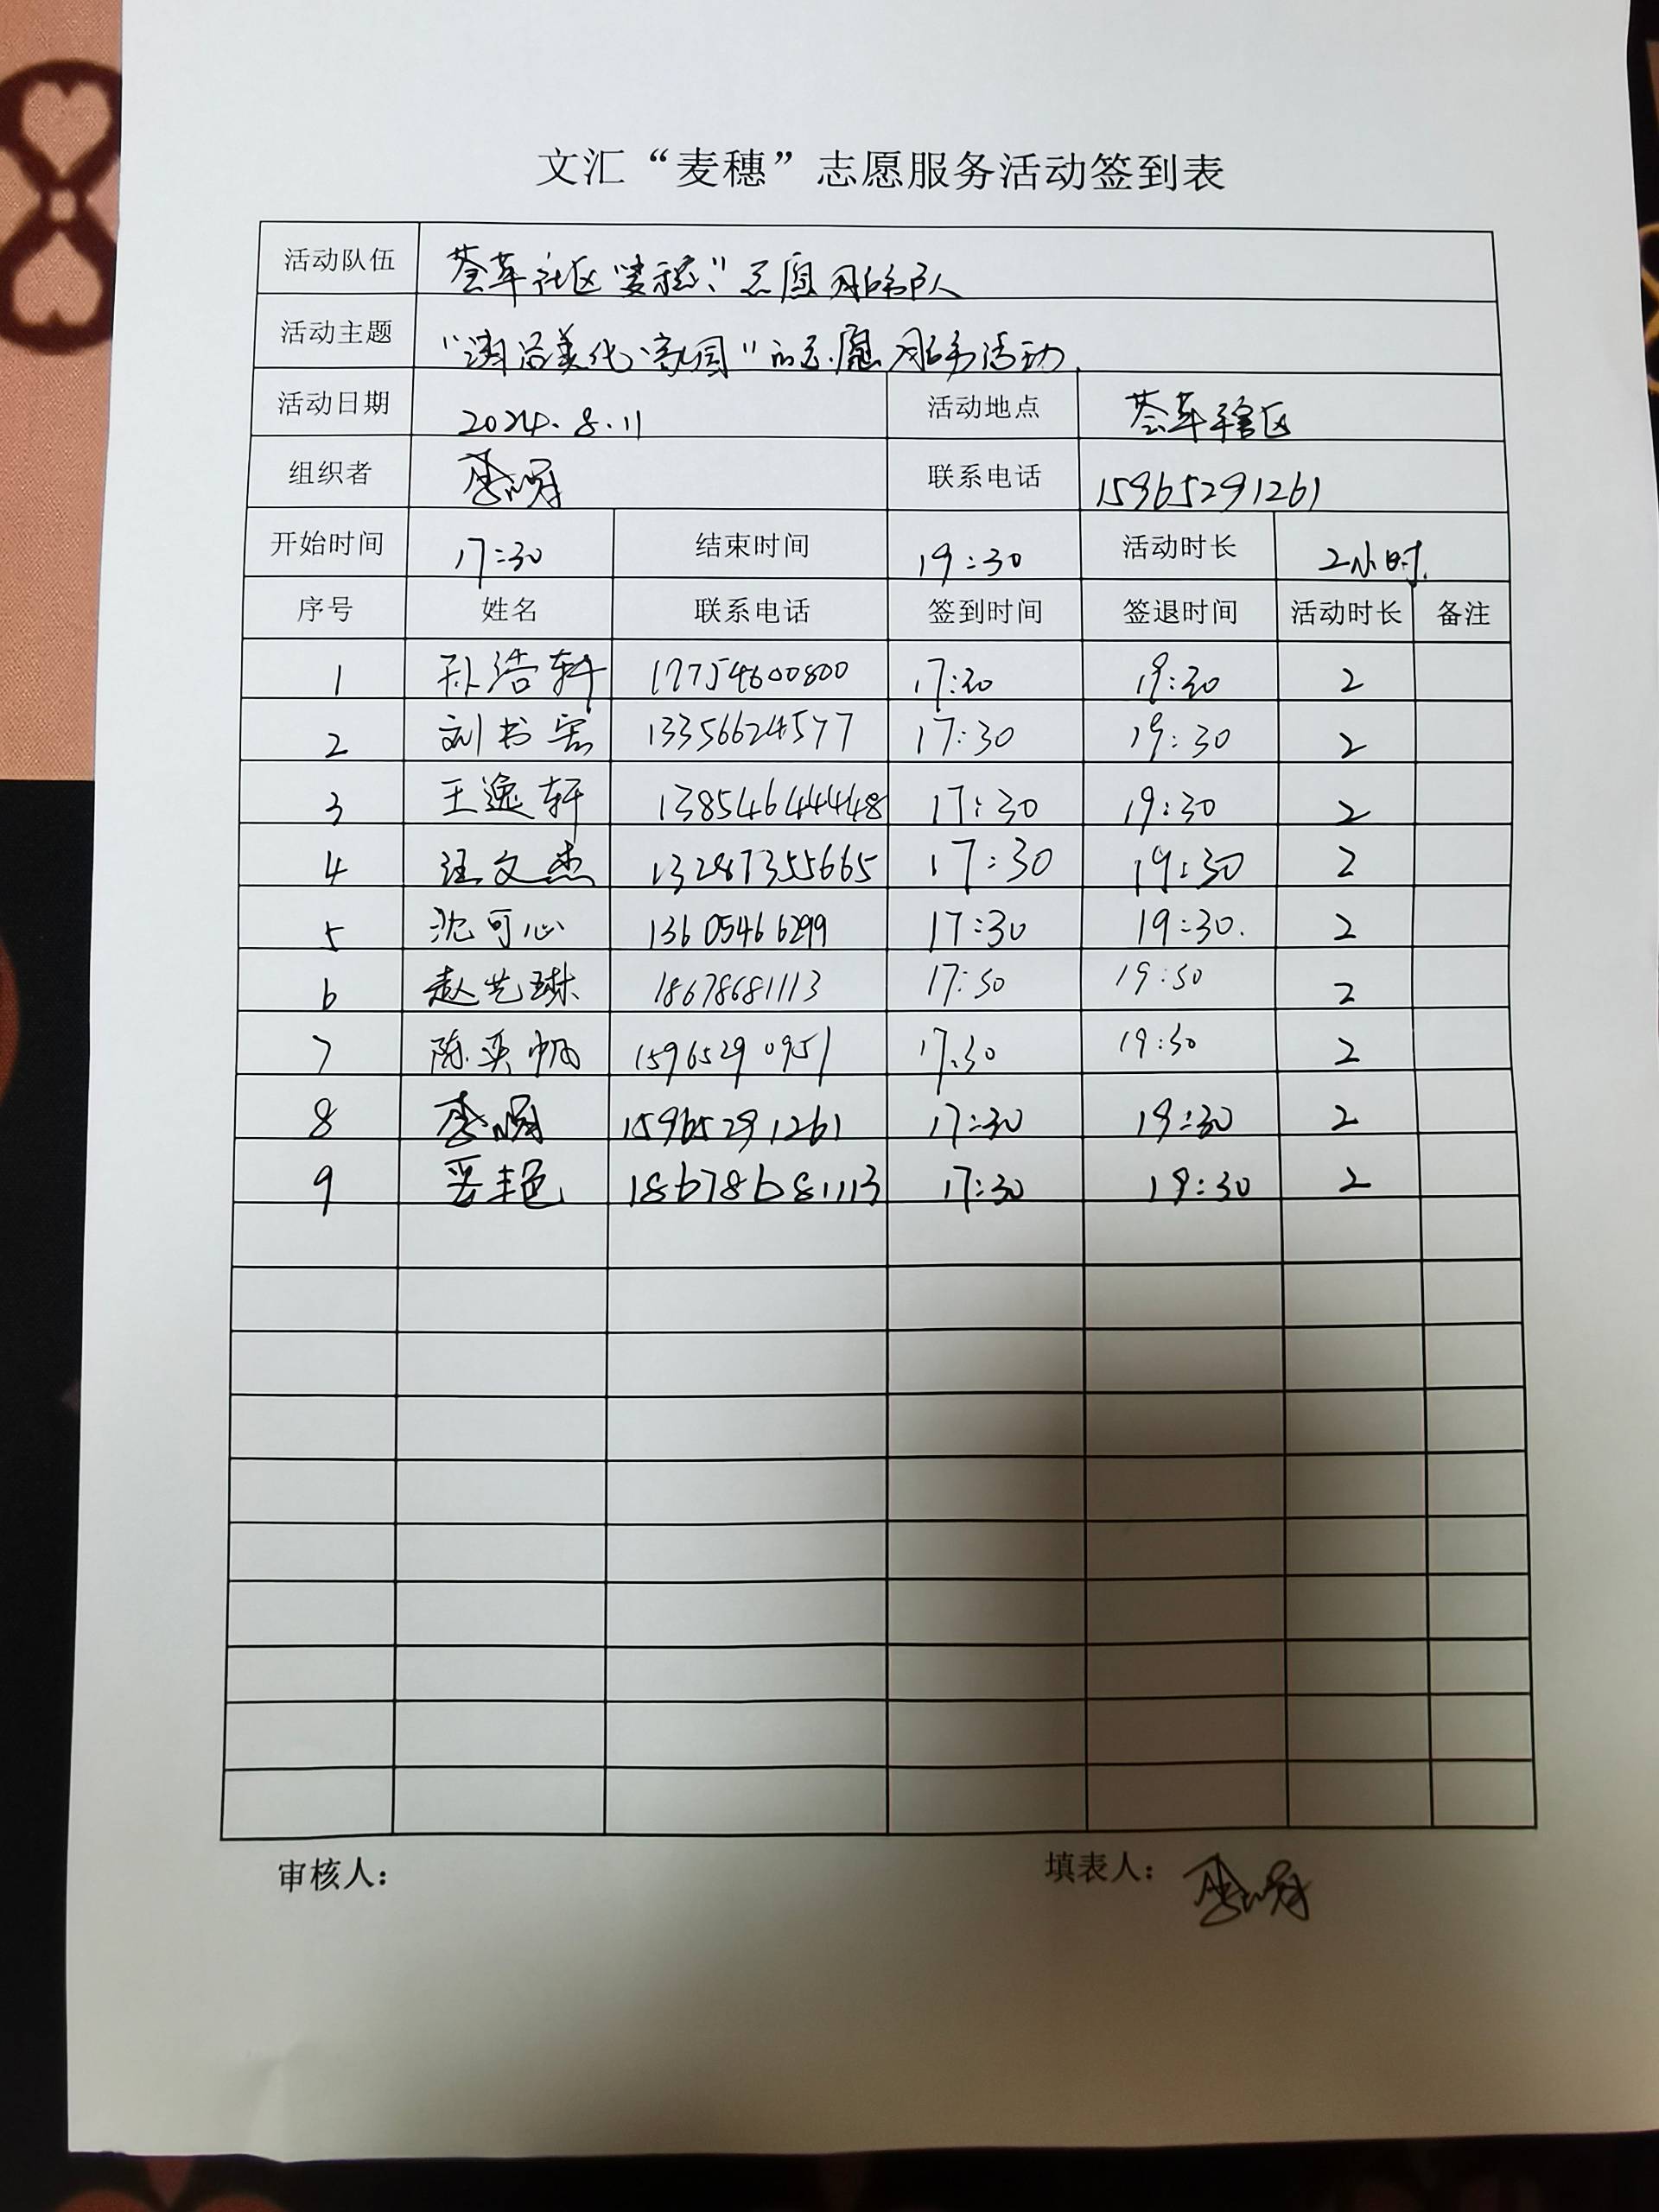 文汇“麦穗”志愿服务活动签到表
活动队伍 荟萃社区“麦穗”志愿服务队
活动主题 “清洁美化家园”的志愿服务活动
活动日期 2024.8.11 活动地点 荟萃辖区
组织者 联系电话 15965291261
开始时间 17:30 结束时间 19:30 活动时长 2小时.
序号 姓名 联系电话 签到时间 签退时间 活动时长 备注
1 孙浩轩 17754600800 17:30 19:30 2
2 刘书宏 13356624577 17:30 19:30 2
3 王逸轩 13854644448 17:30 19:30 2
4 汪文杰 13287355665 17:30 19:30 2
5 沈可心 13605466299 17:30 19:30. 2
6 赵艺琳 18678681113 17:30 19:30 2
7 陈奕帆 15965290951 17:30 19:30 2
8 15965291261 17:30 19:30 2
9 18678681113 17:30 19:30 2
审核人： 填表人：